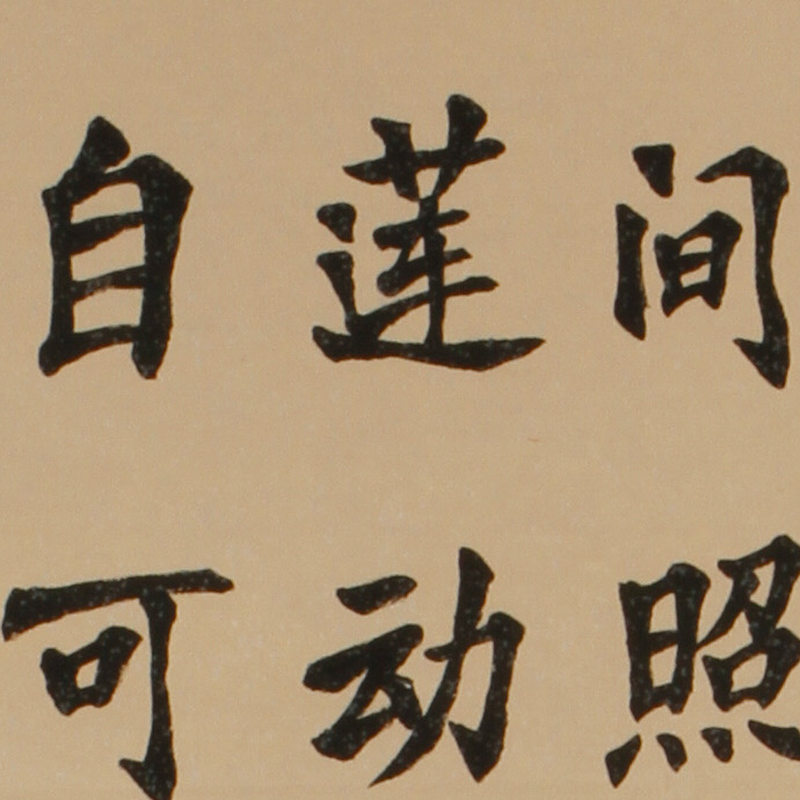 间照
莲动
自可